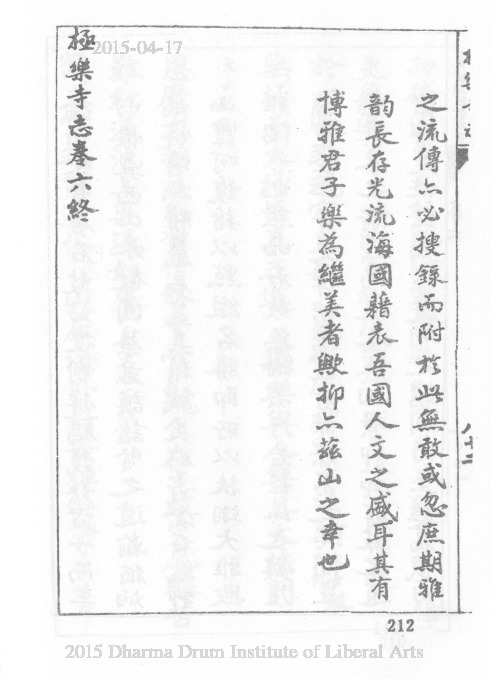 之流傳亦必搜錄而附於此無敢或忽庶期雅
韵長存光流海國藉表吾國人文之盛耳其有
博雅君子樂為繼美者歟抑亦茲山之幸也
極樂寺志卷六終
八十二
212
2015-04-17
2015 Dharma Drum Institute of Liberal Arts